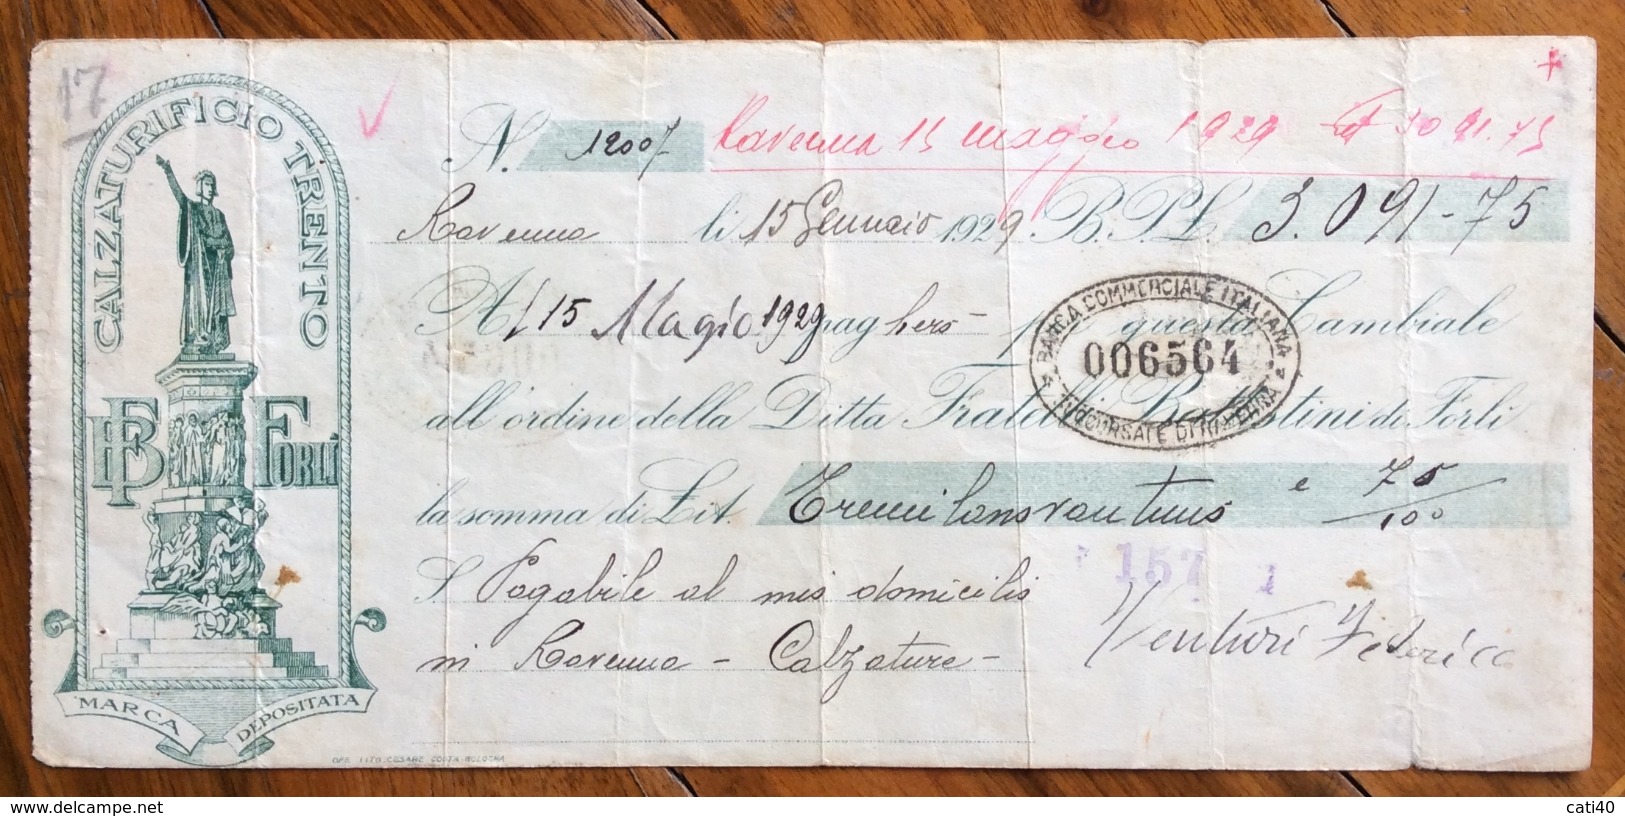 17
CALZATURIFICIO TRENTO
FB FORLÌ
MARCA DEPOSITATA
N. 12007
Ravenna 15 maggio 1929 3091.75
Ravenna li 15 Gennaio 1929. B.P.L. 3.091-75
Al 15 Magio 1929 pagherò per questa Cambiale
all'ordine della Ditta Fratelli Battistini di Forlì
la somma di Lit. Tremilanovantuno e 75/100
BANCA COMMERCIALE ITALIANA
006564
SUCCURSALE DI RAVENNA
157 1
S. Pagabile al mio domicilio
in Ravenna - Calzature -
Venturi Federico
OFF. LITO. CESARE COSTA-BOLOGNA
cati40